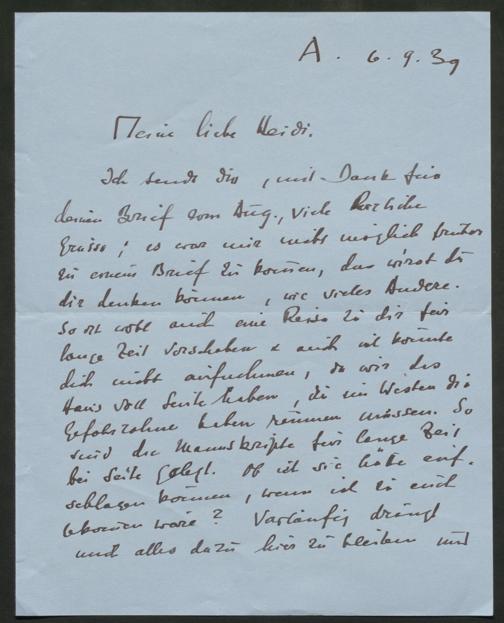 A. 6.9.39
Meine liebe Heidi.
Ich sende dir, mit Dank für
deinen Brief vom Aug., viele herzliche
Grüsse; es war mir nicht möglich früher
zu einem Brief zu kommen, das wirst du
dir denken können, wie vieles Andere.
So ist wohl auch eine Reise zu dir für
lange Zeit verschoben & auch ich könnte
dich nicht aufnehmen, da wir das
Haus voll Leute haben, die im Westen die
Gefahrzone haben räumen müssen. So
sind die Manuskripte für lange Zeit
bei Seite gelegt. Ob ich sie hätte auf-
schlagen können, wenn ich zu euch
gekommen wäre? Vorläufig drängt
mich alles dazu hier zu bleiben und